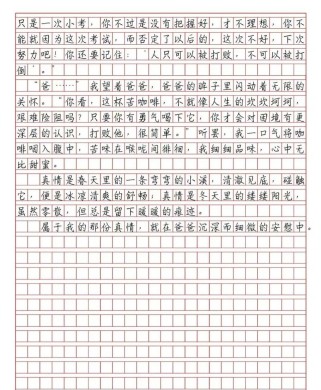 只是一次小考，你不过是没有把握好，才不理想，你不
能就因为这次考试，而否定了以后的，这次不好，下次
努力吧！你还要记住：‘人只可以被打败，不可以被打
倒。’”
“爸……”我望着爸爸，爸爸的眸子里闪动着无限的
关怀。“你看，这杯苦咖啡，不就像人生的坎坎坷坷，
艰难险阻吗？只要你有勇气喝下它，你才会对困境有更
深层的认识，打败他，很简单。”听罢，我一口气将咖
啡咽入腹中，苦味在喉咙间徘徊，我细细品味，心中无
比甜蜜。
真情是春天里的一条弯弯的小溪，清澈见底，碰触
它，便是冰凉清爽的舒畅，真情是冬天里的缕缕阳光，
虽然零散，但总是留下暖暖的痕迹。
属于我的那份真情，就在爸爸沉深而细微的安慰中。